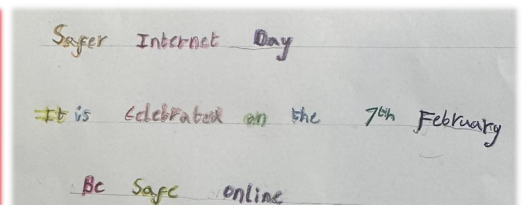 Safer Internet Day
It is Celebrated on the 7th February
Be Safe online